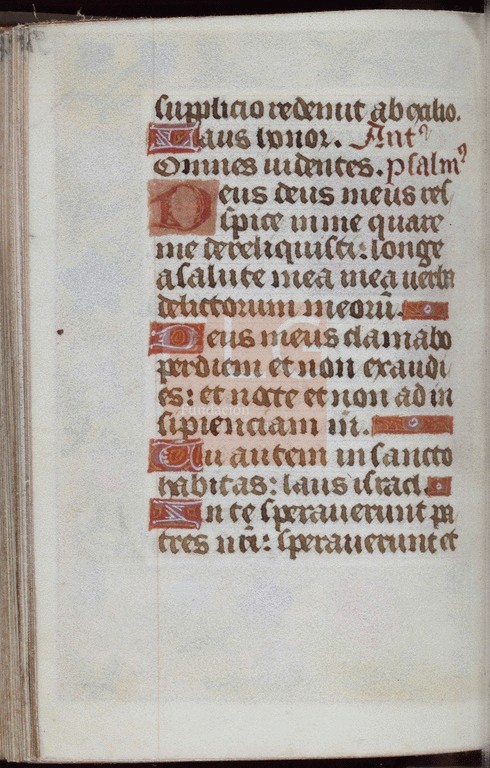 supplicio redemit ab exilio.
Laus honor. Ant⁹
Omnes uidentes. psalm⁹
Deus deus meus res
spice in me quare
me dereliquisti: longe
a salute mea mea uerba
delictorum meorū.
Deus meus clamabo
per diem et non exaudi
es: et nocte et non ad in
sipienciam m.
Tu autem in sancto
habitas: laus israel.
In te sperauerunt pa
tres nr̄i: sperauerunt et
LG
Fundación